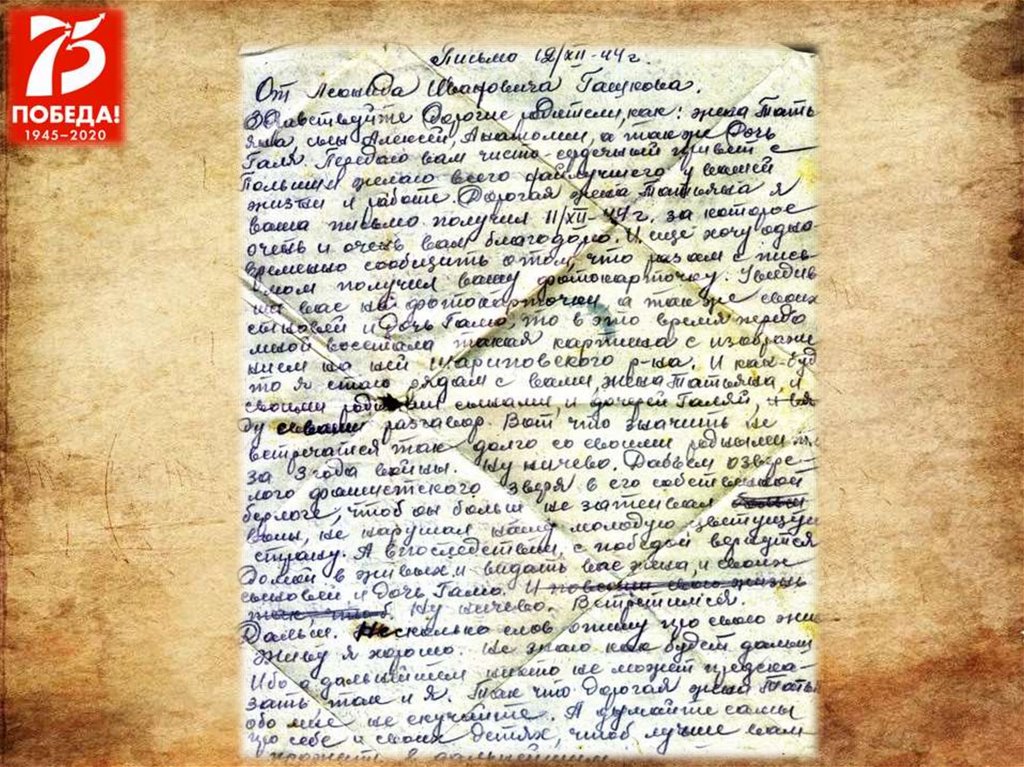 75
ПОБЕДА!
1945–2020
Письмо 12/XII-44 г.
От Леонида Ивановича Гашкова.
Здравствуйте Дорогие родители, как: жена Тать
яна, сыны Алексей, Анатолий, а также Дочь
Галя. Передаю вам чисто-сердечный привет с
Польши и желаю всего найлучшего у вашей
жизни и работе. Дорогая жена Татьяна я
ваше письмо получил 11/XII-44 г. за которое
очень и очень вам благодарю. И ещё хочу одно-
временно сообщить о том, что разом с пись-
мом получил вашу фотокарточку. Увидив
на вас на фотокарточки а также своих
сыновей и Дочь Галю, то в это время передо
мной восстала такая картина с изображе
нием на ней Шариповского р-на. И как-буд
то я стаю рядам с вами, жена Татьяна, и
своими сынами, и дочерей Галяй,
ду с вами разговор. Вот что значить не
встречатся так долго со своими родными
за 3 года войны. Ну ничево. Дабьем озвере-
лого фашистского зверя в его собственной
берлоге, чтоб он больш не затевал
воины, не нарушал нашу молодую цветущую
страну. А впоследствии, с победой вернутся
Домой в живых и видать вас жена, и своих
сыновей, и дочь Галю. И
Ну ничево. Встретимся.
Дальш. Несколько слов опишу про свою жи
Живу я хорошо. Не знаю как будет дальш
Ибо в дальнейшем никто не может предска-
зать так и я. Так что Дорогая жена Тать
обо мне не скучайте. А думайте сами
про себе и своих детях, чтоб лучше вам
прожить в дальнейшем